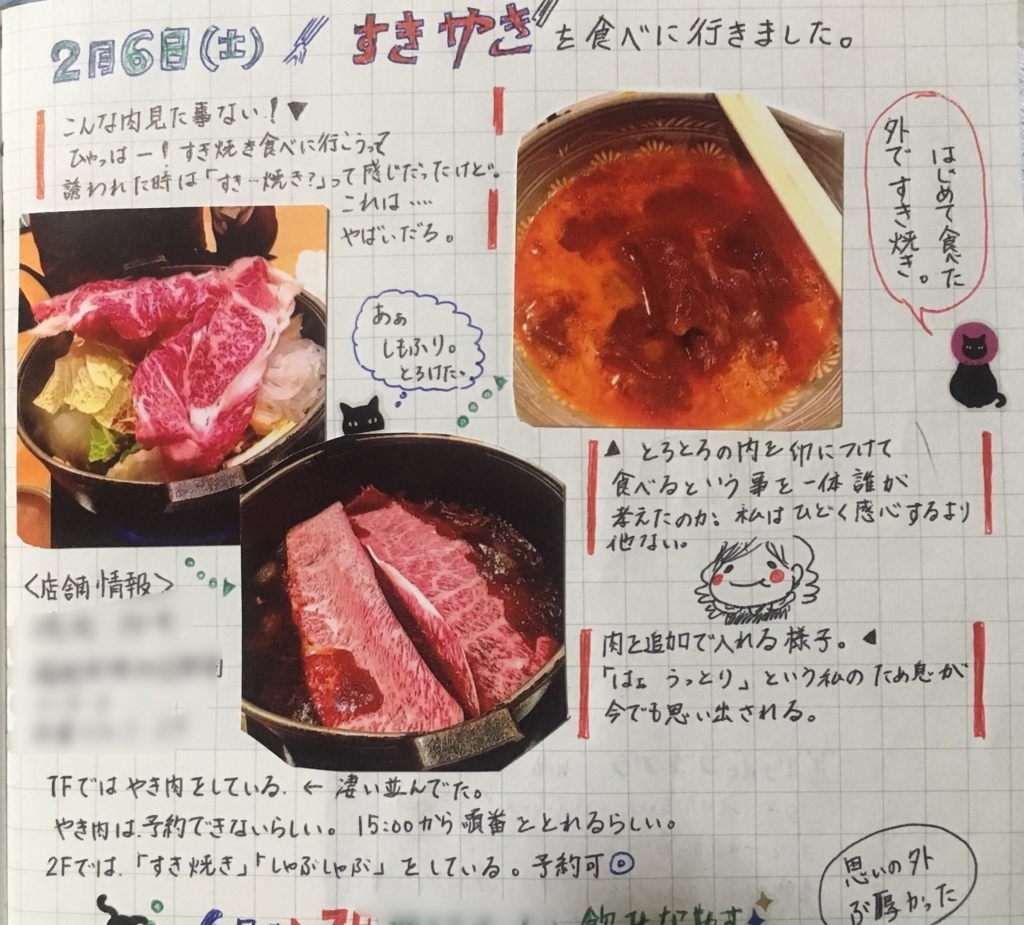 2月6日(土) すきやきを食べに行きました。
こんな肉見た事ない!▼
ひゃっはー!すき焼き食べに行こうって
誘われた時は「すき…焼き?」って感じだったけど。
これは….
やばいだろ。
はじめて食べた
外ですき焼き。
あぁ
しもふり。
とろけた。
▲ とろとろの肉を卵につけて
食べるという事を一体誰が
考えたのか。私はひどく感心するより
他ない。
肉を追加で入れる様子。◀
「はぁ うっとり」という私のため息が
今でも思い出される。
〈店舗情報〉
1Fではやき肉をしている. ← 凄い並んでた。
やき肉は、予約できないらしい。15:00から順番をとれるらしい。
2Fでは、「すき焼き」「しゃぶしゃぶ」をしている。予約可◎
思いの外
ぶ厚かった